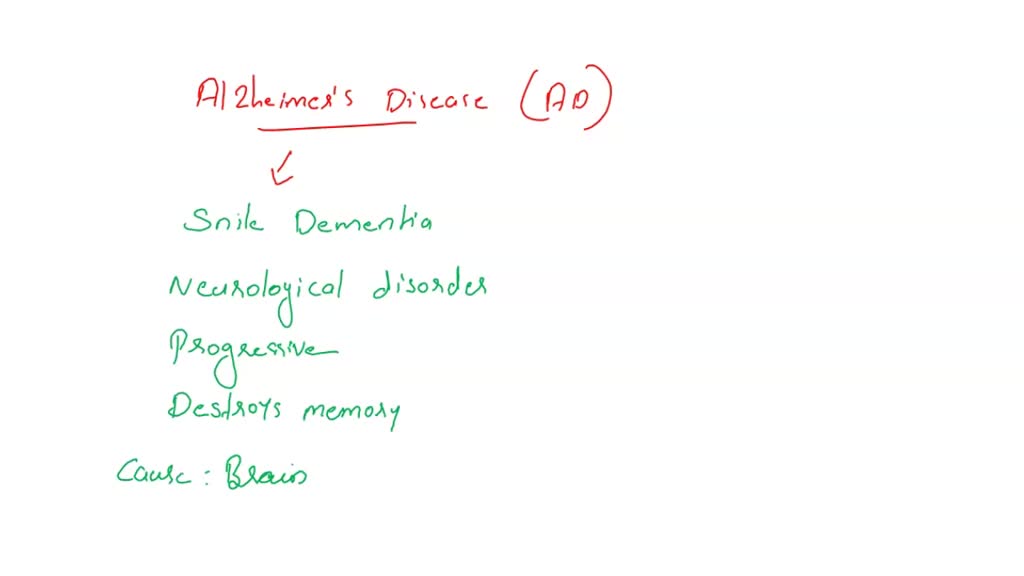 Alzheimer's Disease (AD)
Snile Dementia
Neurological disorder
Progressive
Destroys memory
Cause : Brain